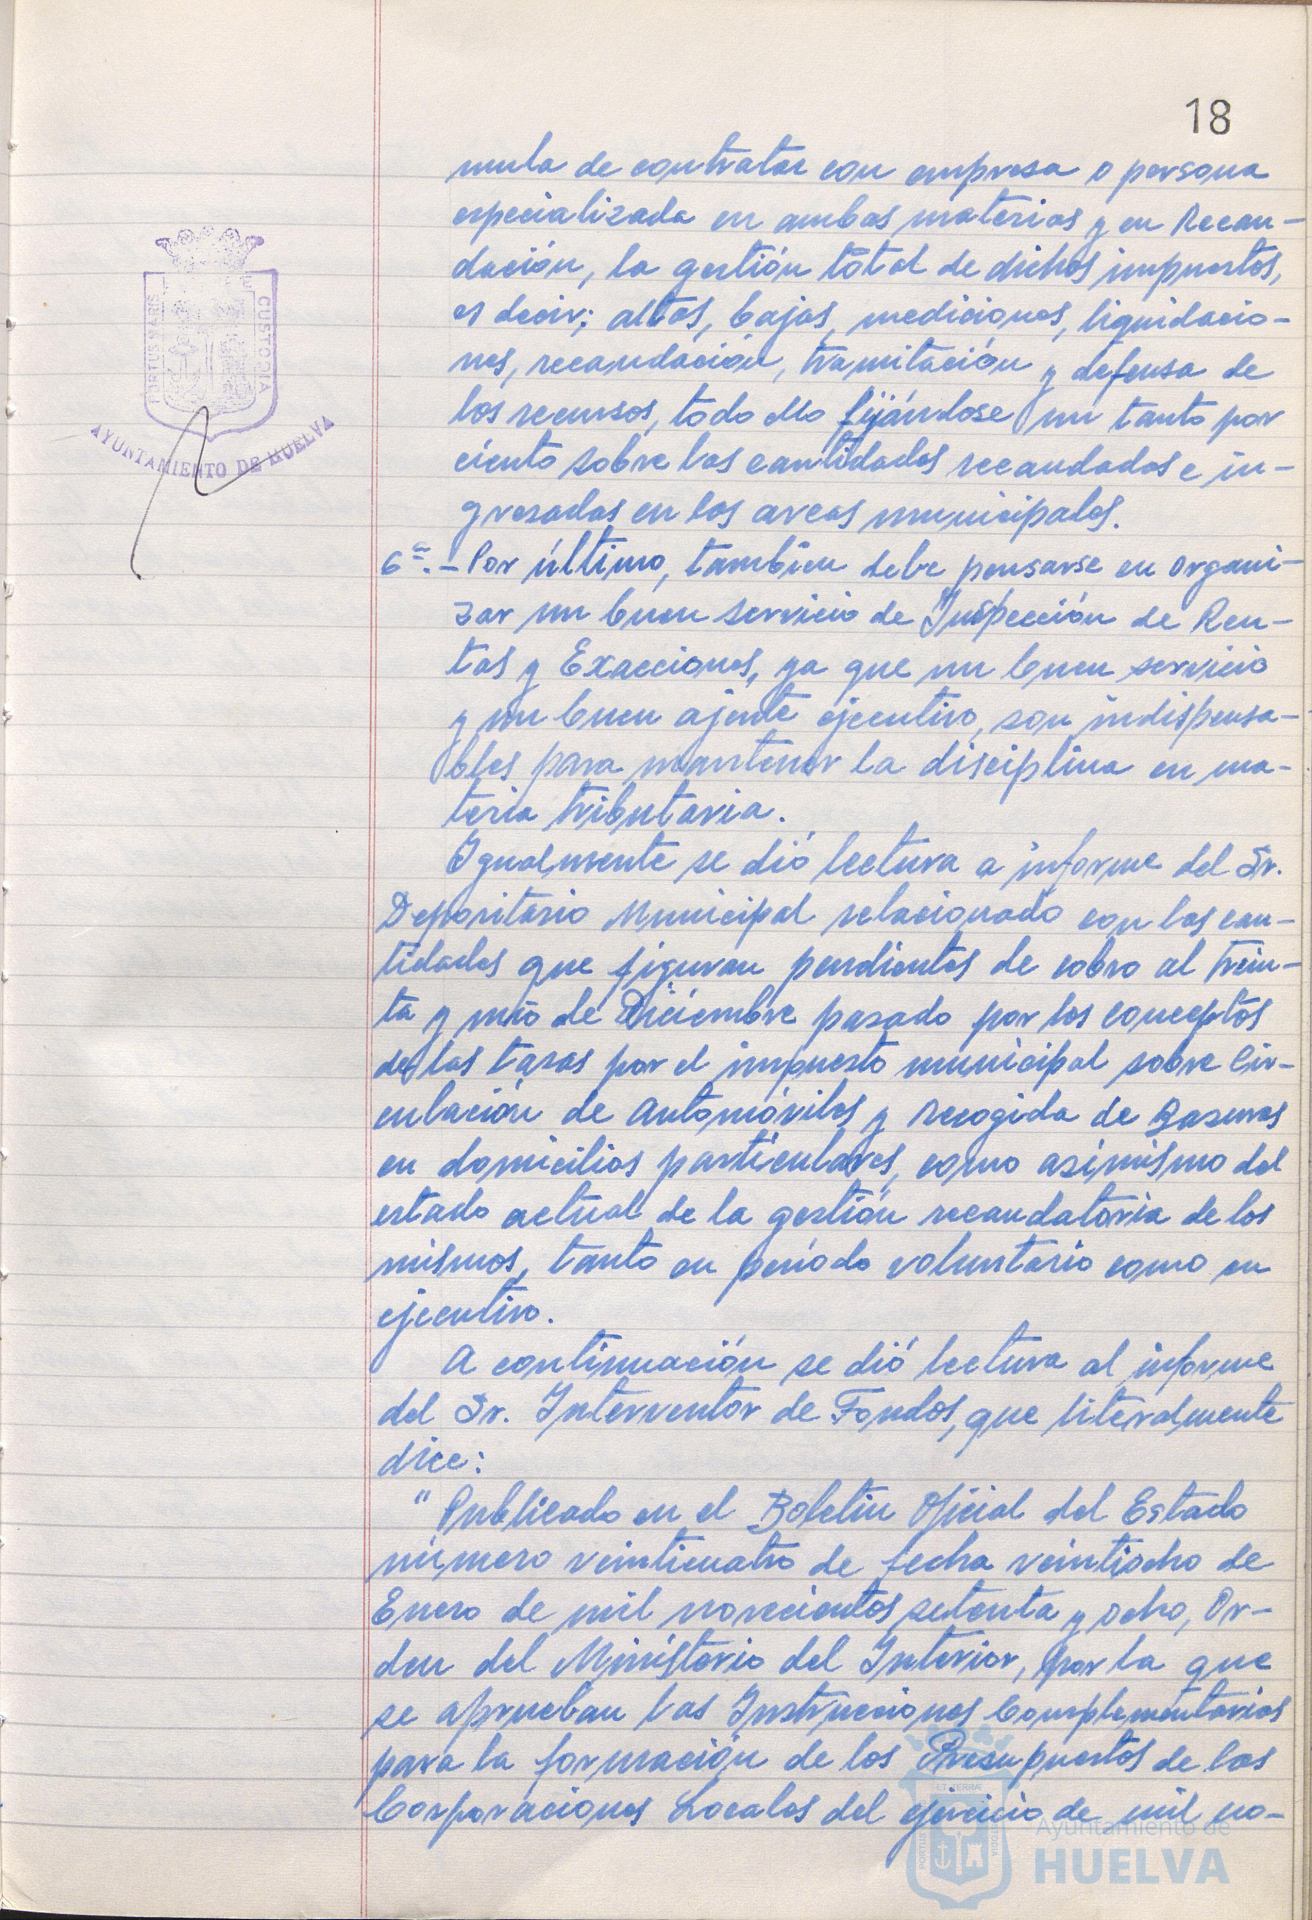 18
mula de contratar con empresa o persona
especializada en ambas materias y en Recau-
dación, la gestión total de dichos impuestos,
es decir; altas, bajas, mediciones, liquidacio-
nes, recaudación, tramitación y defensa de
los recursos, todo ello fijándose un tanto por
ciento sobre las cantidades recaudadas e in-
gresadas en las arcas municipales.
6ª.- Por último, tambien debe pensarse en organi-
zar un buen servicio de Inspección de Ren-
tas y Exacciones, ya que un buen servicio
y un buen ajente ejecutivo, son indispensa-
bles para mantener la disciplina en ma-
teria tributaria.
Igualmente se dió lectura a informe del Sr.
Depositario Municipal relacionado con las can-
tidades que figuran pendientes de cobro al trein-
ta y uno de Diciembre pasado por los conceptos
de las tasas por el impuesto municipal sobre Cir-
culación de Automóviles y Recogida de Basuras
en domicilios particulares, como asimismo del
estado actual de la gestión recaudatoria de los
mismos, tanto en período voluntario como en
ejecutivo.
A continuación se dió lectura al informe
del Sr. Interventor de Fondos, que literalmente
dice:
" Publicado en el Boletin Oficial del Estado
número veinticuatro de fecha veintiocho de
Enero de mil novecientos setenta y ocho, Or-
den del Ministerio del Interior, por la que
se aprueban las Instrucciones Complementarias
para la formación de los Presupuestos de las
Corporaciones Locales del ejercicio de mil no-
PORTUS MARIS
CUSTODIA
AYUNTAMIENTO DE HUELVA
Ayuntamiento de
HUELVA